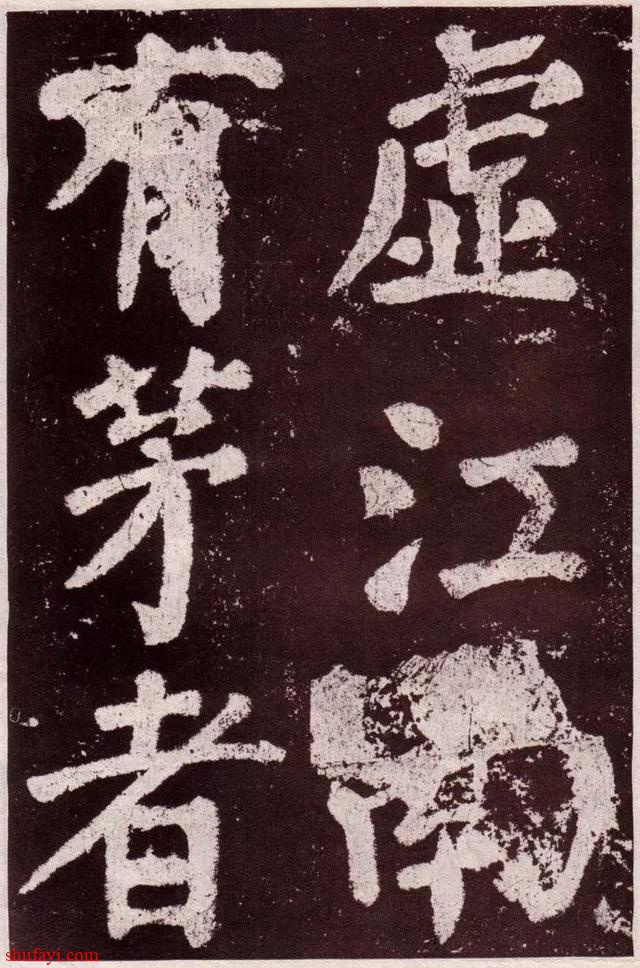 虚江南
有茅者
shufayi.com